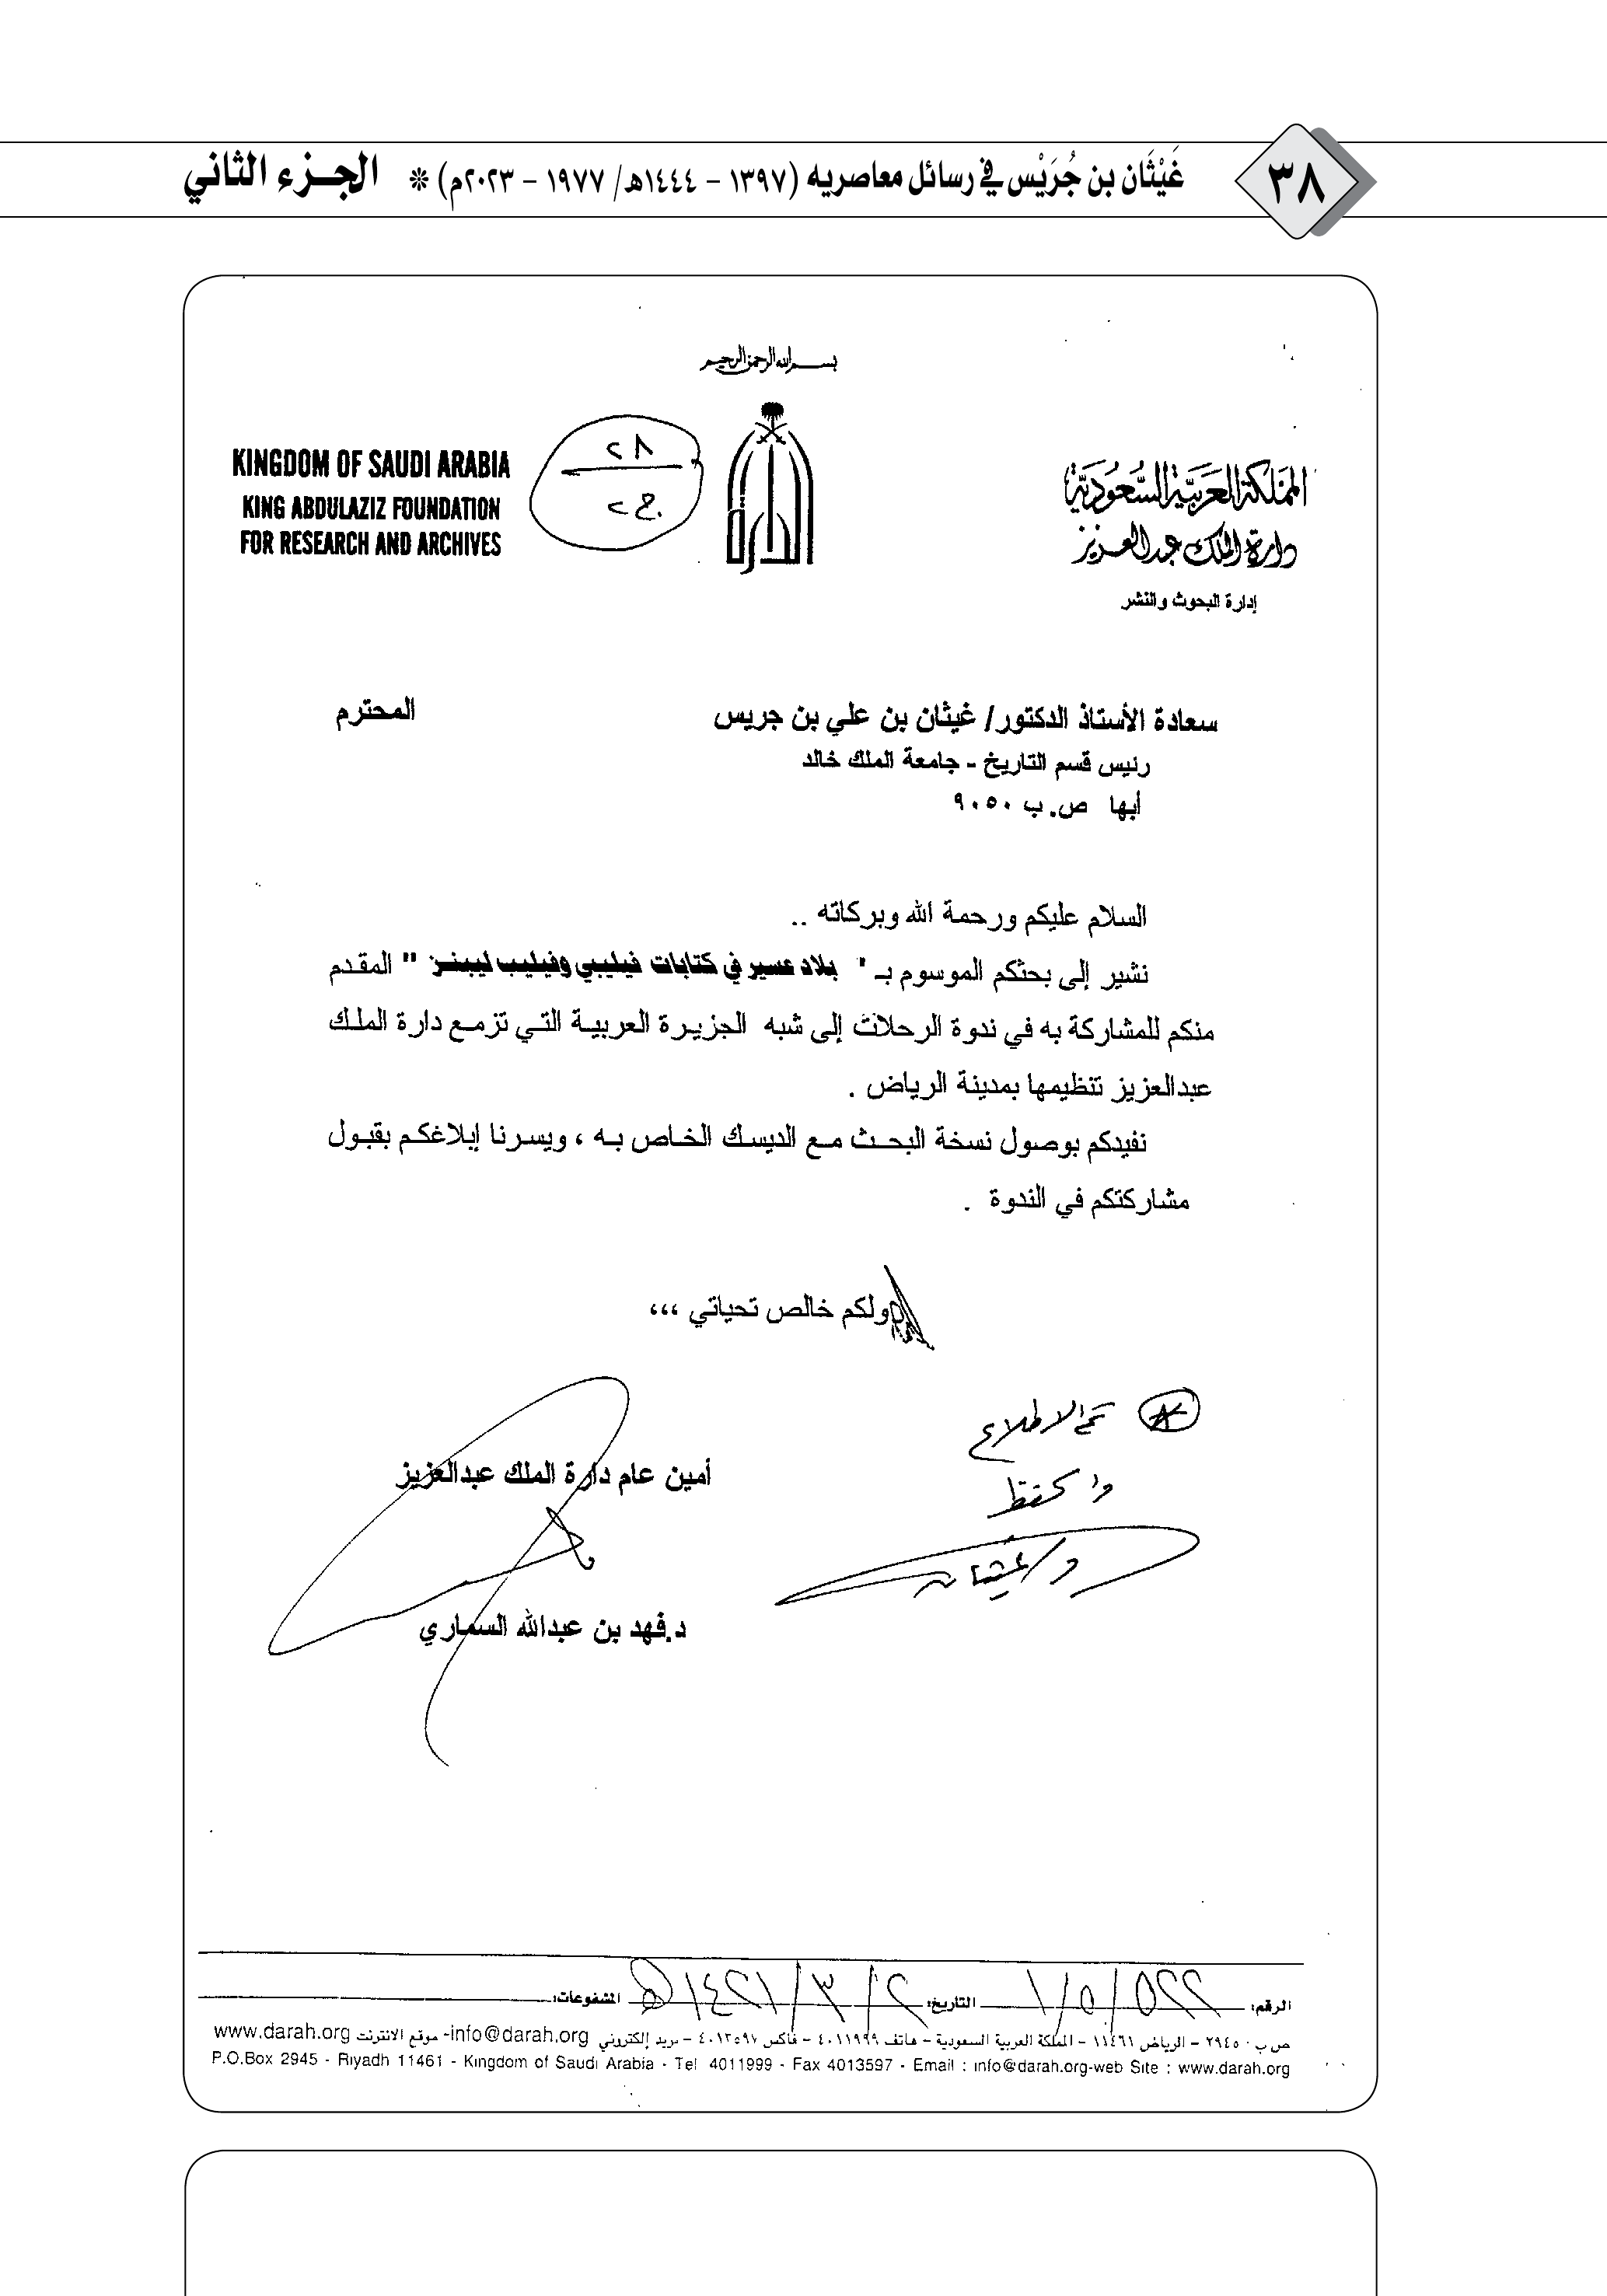 ٣٨
غَيْثَان بن جُرَيْس في رسائل معاصريه (١٣٩٧ – ١٤٤٤هـ/ ١٩٧٧ – ٢٠٢٣م) * الجزء الثاني
بسم الله الرحمن الرحيم
المملكة العربية السعودية
دارة الملك عبدالعزيز
إدارة البحوث والنشر
الدارة
٢٨
ج٢
KINGDOM OF SAUDI ARABIA
KING ABDULAZIZ FOUNDATION
FOR RESEARCH AND ARCHIVES
سعادة الأستاذ الدكتور/ غيثان بن علي بن جريس المحترم
رئيس قسم التاريخ - جامعة الملك خالد
أبها ص.ب ٩٠٥٠
السلام عليكم ورحمة الله وبركاته ..
نشير إلى بحثكم الموسوم بـ " بلاد عسير في كتابات فيليبي وفيليب ليبنز " المقدم
منكم للمشاركة به في ندوة الرحلات إلى شبه الجزيرة العربية التي تزمع دارة الملك
عبدالعزيز تنظيمها بمدينة الرياض .
نفيدكم بوصول نسخة البحث مع الديسك الخاص به ، ويسرنا إبلاغكم بقبول
مشاركتكم في الندوة .
ولكم خالص تحياتي ،،،
تم الاطلاع
و
د/ غيثان
أمين عام دارة الملك عبدالعزيز
د.فهد بن عبدالله السماري
الرقم: التاريخ: المشفوعات:
ص ب ٢٩٤٥٠ – الرياض ١١٤٦١ – المملكة العربية السعودية – هاتف ٤٠١١٩٩٩ – فاكس ٤٠١٣٥٩٧ – بريد إلكتروني info@darah.org- موقع الانترنت www.darah.org
P.O.Box 2945 - Riyadh 11461 - Kingdom of Saudi Arabia - Tel 4011999 - Fax 4013597 - Email : info@darah.org-web Site : www.darah.org